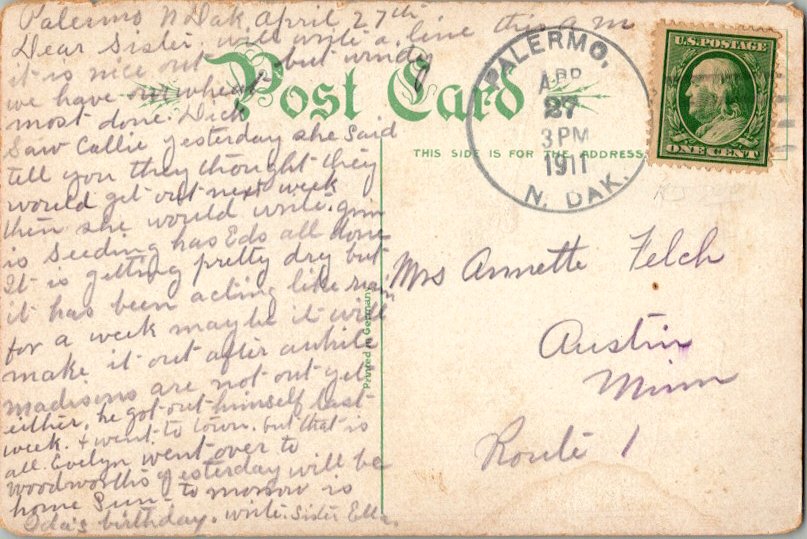 Palermo N Dak April 27th
Dear Sister will write a line this a m
it is nice out but windy
we have our wheat
most done. Dick
Saw Callie yesterday she said
tell you they thought they
would get out next week
then she would write.
is Seeding has Eds all done
It is getting pretty dry but
it has been acting like rain
for a week maybe it will
make it out after awhile
madisons are not out yet
either, he got out himself last
week. + went to town. but that is
all. Evelyn went over to
woodworths yesterday will be
home Sun to morrow is
Oda's birthday. write. Sister Ella.
Post Card
THIS SIDE IS FOR THE ADDRESS
Printed in Germany
PALERMO,
APR
27
3 PM
1911
N. DAK.
U.S. POSTAGE
ONE CENT
Mrs Annette Felch
Austin
Minn
Route 1